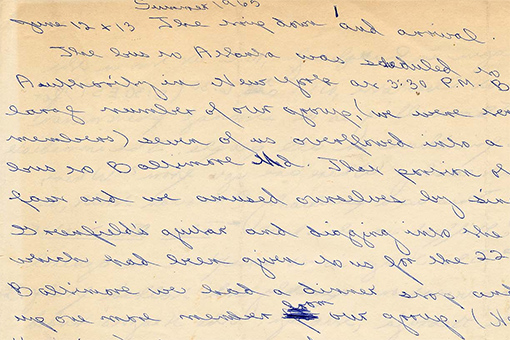 Summer 1965
June 12 & 13 The trip down and arrival.
The bus to Atlanta was scheduled to
Authority in New York at 3:30 P.M. B
large number of our group, (we were
members) seven of us overflowed into a
bus to Baltimore Md. That portion of
fast and we amused ourselves by sin
Greenfield's guitar and digging into the
which had been given to us for the 22
Baltimore we had a dinner stop and
up one more member from our group. (No